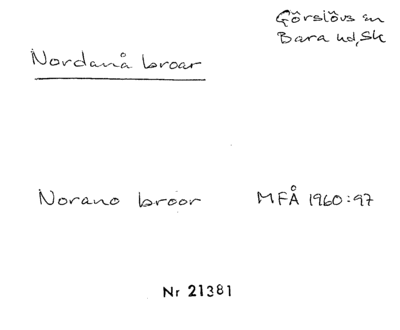 Görslövs sn
Bara hd, Sk
Nordanå broar
Norano broor MFÅ 1960:97
Nr 21381